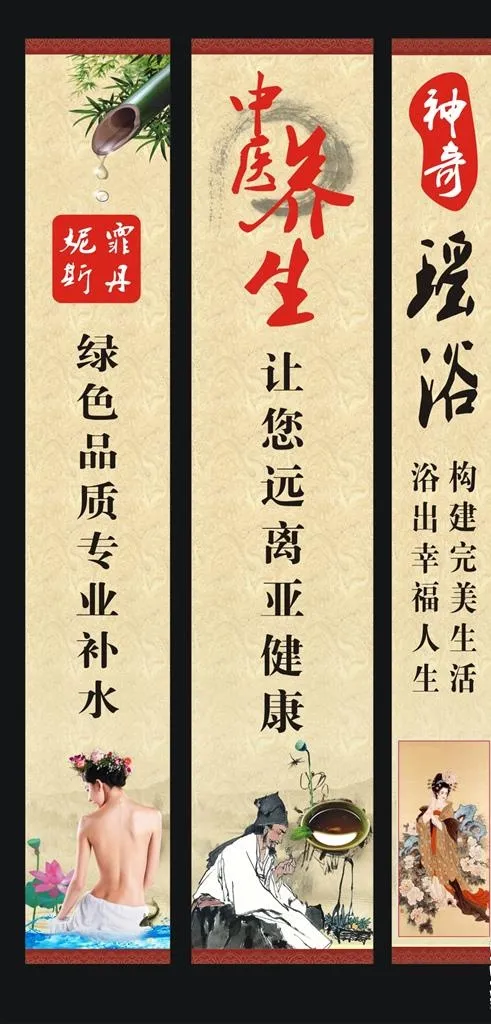 霏丹
妮斯
绿色品质专业补水
中医养生
让您远离亚健康
神奇
瑶浴
构建完美生活
浴出幸福人生